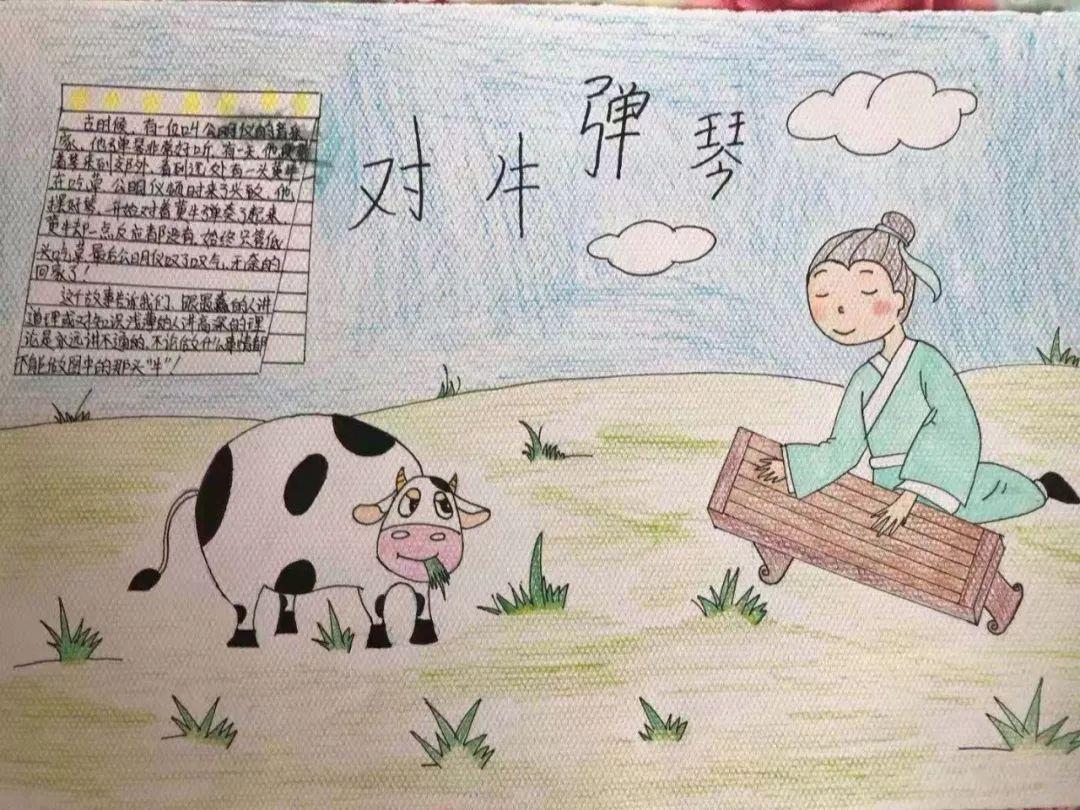 对牛弹琴
古时候，有一位叫公明仪的音乐
家，他弹琴非常好听，有一天，他
着琴来到郊外，看到远处有一头黄牛
在吃草，公明仪顿时来了兴致，他
摆好琴，开始对着黄牛弹奏了起来，
黄牛却一点反应都没有，始终只管低
头吃草，最后公明仪叹了叹气，无奈的
回家了！
这个故事告诉我们，跟愚蠢的人讲
道理或对知识浅薄的人讲高深的理
论是永远讲不通的，不论做什么事情都
不能做图中的那头“牛”！